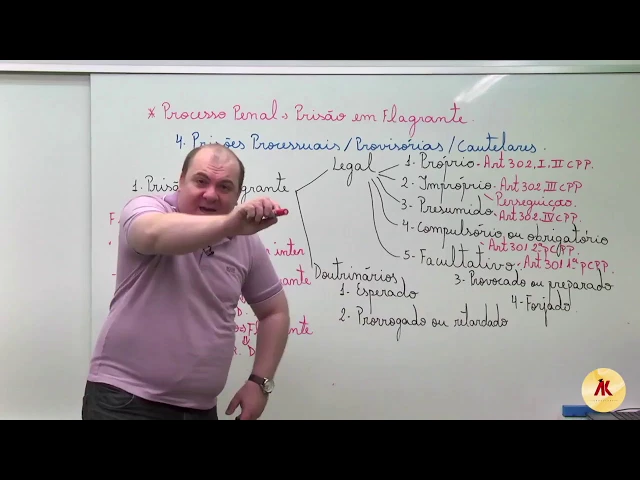 * Processo Penal → Prisão em Flagrante.
4. Prisões Processuais / Provisórias / Cautelares.
1. Prisão grante
Legal
1. Próprio - Art 302, I, II CPP.
2. Impróprio - Art 302 III CPP
Perseguição.
3 - Presumido - Art 302 IV CPP.
4 - Compulsório ou obrigatório
Art 301 2ª p CPP.
5 - Facultativo - Art 301 1ª p CPP.
inter
ante
Flagrante
R. D
D.
Doutrinários
1 - Esperado
2 - Prorrogado ou retardado
3 - Provocado ou preparado
4 - Forjado.
AK